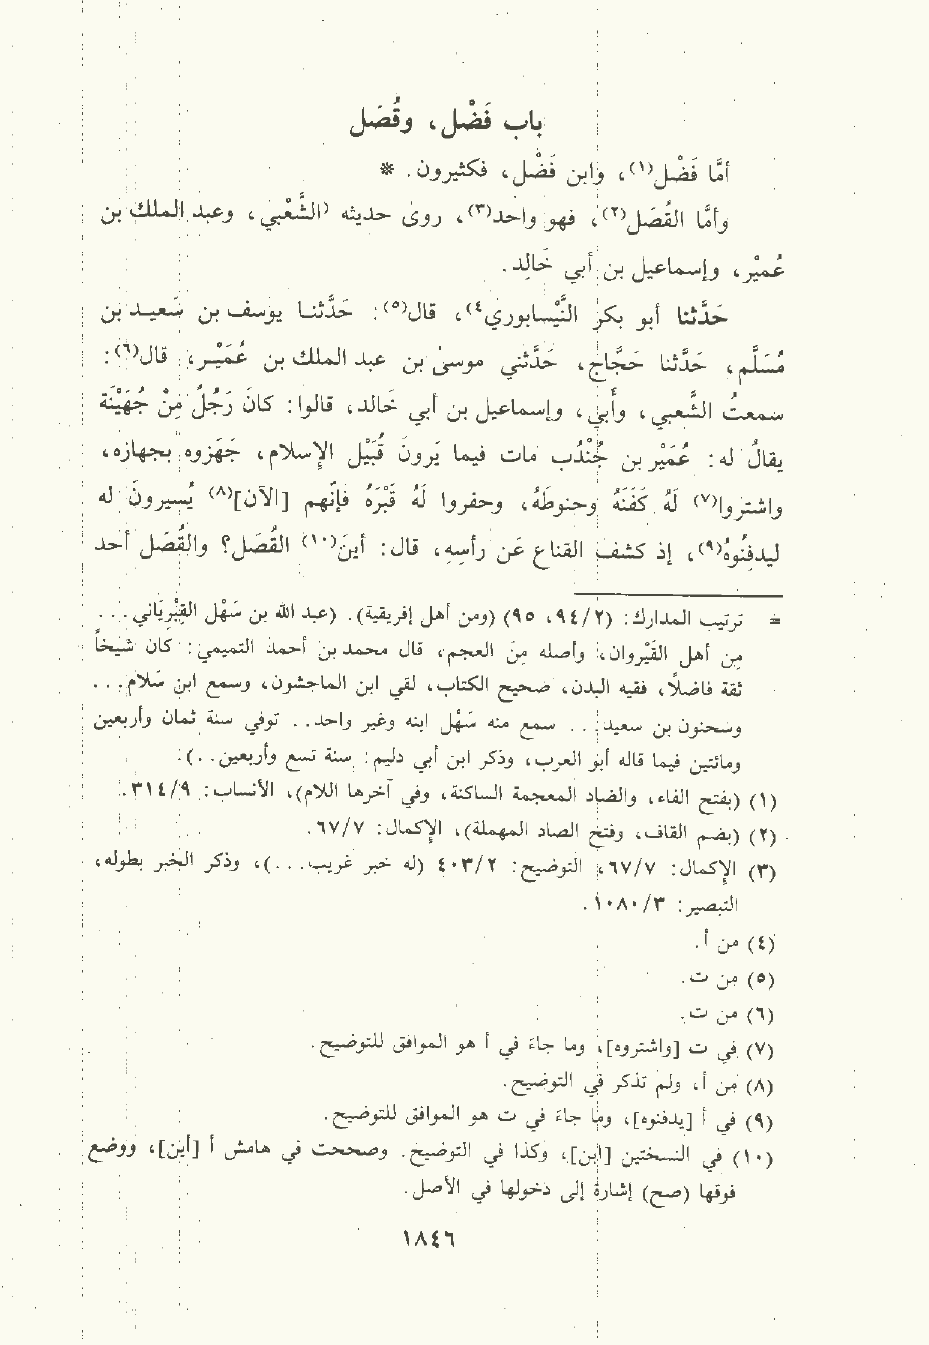 باب فَضْل ، وقُصَل
أمَّا فَضْل(١)، وابن فَضْل ، فكثيرون . *
وأمَّا القُصَل(٢)، فهو واحد(٣)، روى حديثه (الشَّعْبي ، وعبد الملك بن
عُمَيْر ، وإسماعيل بن أبي خالد .
حدَّثنا أبو بكر النَّيْسابوري(٤)، قال(٥): حَدَّثنا يوسف بن سَعيد بن
مُسَلَّم ، حَدَّثنا حَجاَّج ، حَدَّثني موسىٰ بن عبد الملك بن عُمَيْر ، قال(٦):
سمعتُ الشَّعبي ، وأبي ، وإسماعيل بن أبي خالد ، قالوا : كانَ رَجُلٌ مِنْ جُهَيْنَة
يقالُ له : عُمَيْر بن جُنْدُب مات فيما يَرونَ قُبَيْل الإسلام ، جَهَزوه بجهازه ،
واشتروا(٧) لَهُ كَفَنَهُ وحنوطَهُ ، وحفروا لَهُ قَبْرَهُ فإنَّهم [الآن](٨) يُسيرونَ له
ليدفِنُوهُ(٩)، إذ كشف القناع عَن رأسِهِ ، قال : أينَ(١٠) القُصَل؟ والقُصَل أحد
= ترتيب المدارك : (٢/ ٩٤، ٩٥) (ومن أهل إفريقية). (عبد الله بن سَهْل القِبْرِيَاني . . .
مِن أهل القَيْروان ، وأصله مِنَ العجم ، قال محمد بن أحمد التميمي : كان شيخاً
ثقة فاضلاً ، فقيه البدن ، صحيح الكتاب ، لقي ابن الماجشون ، وسمع ابن سَلاَّم . . .
وسحنون بن سعيد . . . سمع منه سَهْل ابنه وغير واحد . . توفي سنة ثمان وأربعين
ومائتين فيما قاله أبو العرب ، وذكر ابن أبي دليم : سنة تسع وأربعين . .).
(١) (بفتح الفاء ، والضاد المعجمة الساكنة ، وفي آخرها اللام)، الأنساب : ٩/ ٣١٤.
(٢) (بضم القاف ، وفتح الصاد المهملة)، الإكمال : ٧/ ٦٧.
(٣) الإكمال : ٧/ ٦٧، التوضيح : ٢/ ٤٠٣ (له خبر غريب . . .)، وذكر الخبر بطوله ،
التبصير : ٣/ ١٠٨٠.
(٤) من أ .
(٥) من ت .
(٦) من ت .
(٧) في ت [واشتروه]، وما جاءَ في أ هو الموافق للتوضيح .
(٨) من أ، ولم تذكر في التوضيح .
(٩) في أ [يدفنوه]، وما جاءَ في ت هو الموافق للتوضيح .
(١٠) في النسختين [ابن]، وكذا في التوضيح . وصححت في هامش أ [أين]، ووضع
فوقها (صح) إشارة إلى دخولها في الأصل .
١٨٤٦